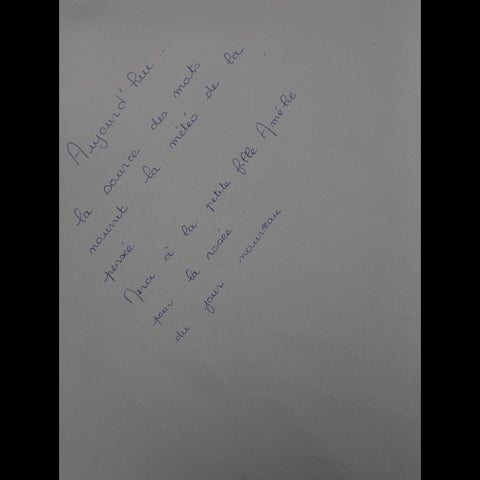 Aujourd'hui...
la source des mots
nourrit la météo de la
pensée
Merci à la petite fille Amélie
pour la rosée...
du jour nouveau